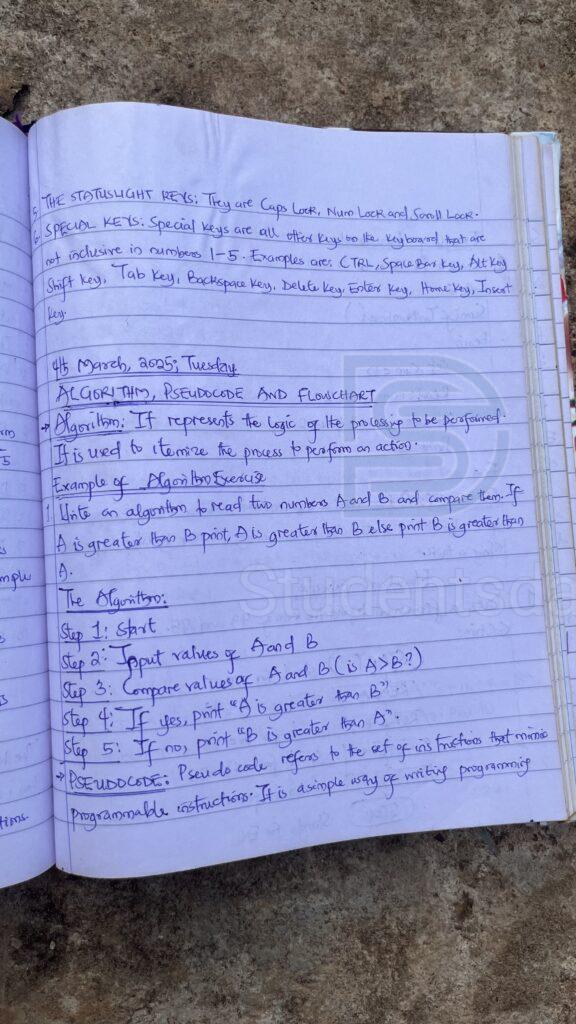 5. THE STATUSLIGHT KEYS: They are Caps Lock, Num Lock and Scroll Lock.
6. SPECIAL KEYS: Special keys are all other keys on the keyboard that are
not inclusive in numbers 1-5. Examples are: CTRL, Space Bar key, Alt key
Shift key, Tab key, Backspace key, Delete key, Enter key, Home key, Insert
key.
4th March, 2025; Tuesday
ALGORITHM, PSEUDOCODE AND FLOWCHART
→ Algorithm: It represents the logic of the processing to be performed.
It is used to itemize the process to perform an action.
Example of Algorithm Exercise
1. Write an algorithm to read two numbers A and B and compare them. If
A is greater than B print, A is greater than B else print B is greater than
A.
The Algorithm:
Step 1: Start
Step 2: Input values of A and B
Step 3: Compare values of A and B (is A>B?)
Step 4: If yes, print "A is greater than B".
Step 5: If no, print "B is greater than A".
→ PSEUDOCODE: Pseudo code refers to the set of instructions that mimic
programmable instructions. It is a simple way of writing programming